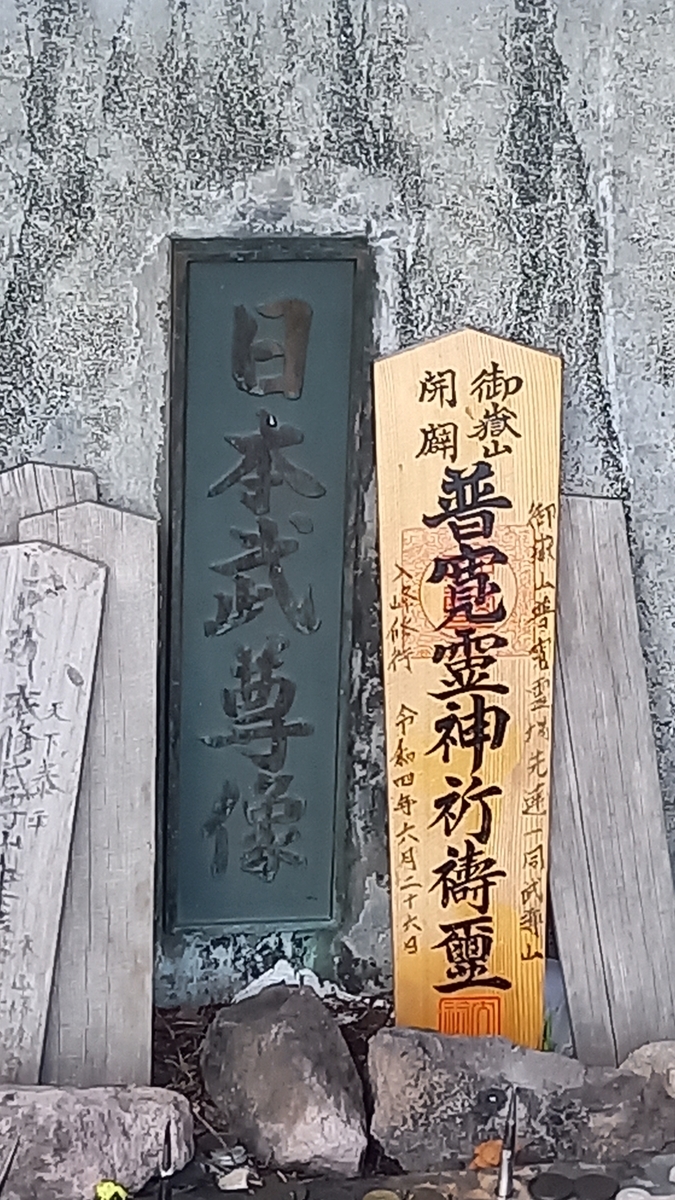 日本武尊像
御嶽山
開闢
普寛霊神祈禱璽
御嶽山普寛霊場先達一同武尊山
入峰修行 令和四年六月二十六日
天下泰平